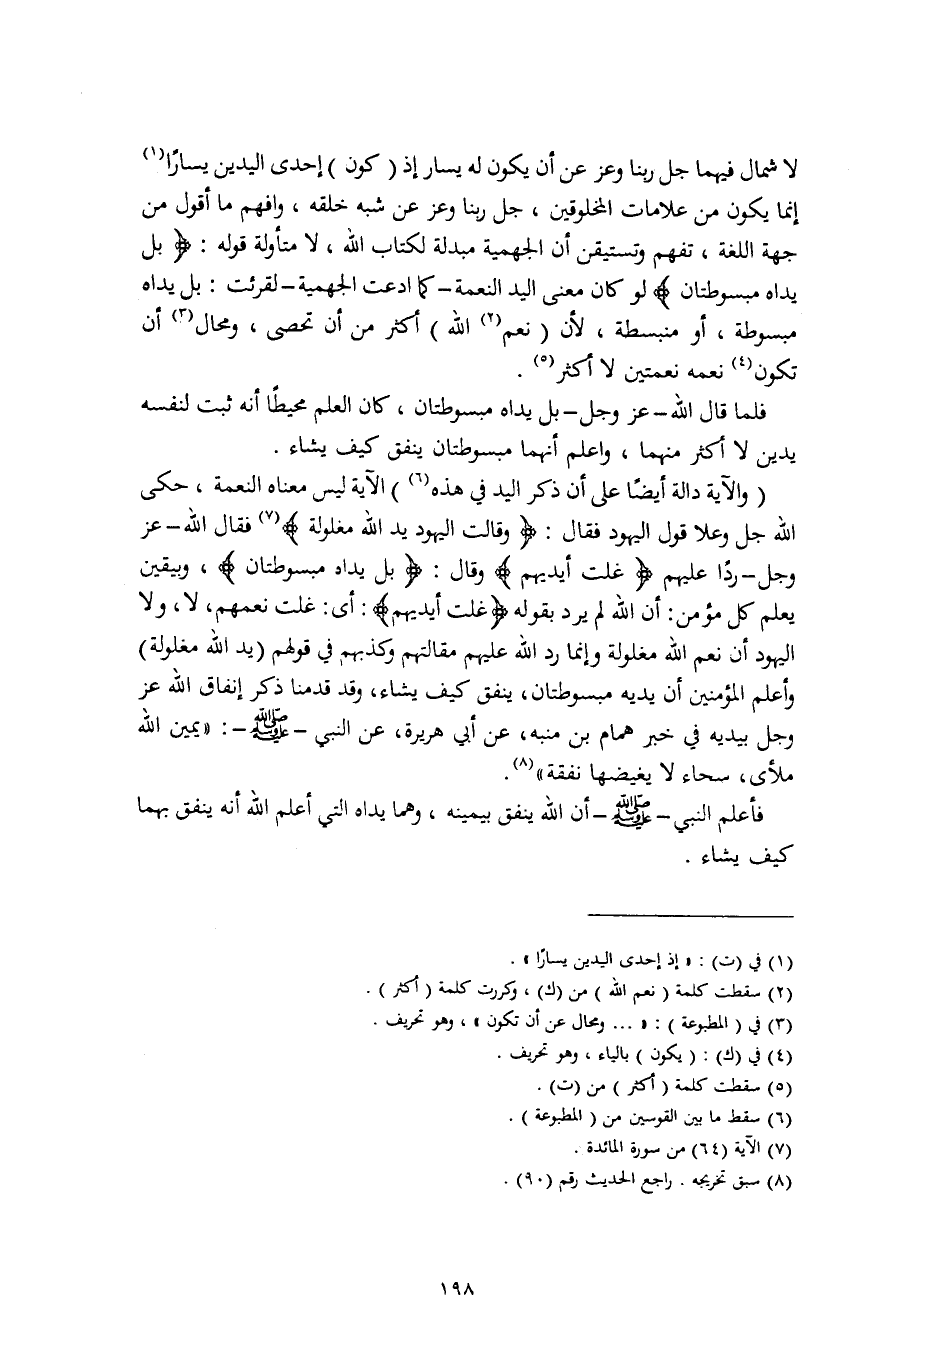 لا شمال فيهما جل ربنا وعز عن أن يكون له يسار إذ ( كون ) إحدى اليدين يسارًا(١)
إنما يكون من علامات المخلوقين ، جل ربنا وعز عن شبه خلقه ، وافهم ما أقول من
جهة اللغة ، تفهم وتستيقن أن الجهمية مبدلة لكتاب الله ، لا متأولة قوله : ﴿ بل
يداه مبسوطتان ﴾ لو كان معنى اليد النعمة – كما ادعت الجهمية – لقرئت : بل يداه
مبسوطة ، أو منبسطة ، لأن ( نعم(٢) الله ) أكثر من أن تحصى ، ومحال(٣) أن
تكون(٤) نعمه نعمتين لا أكثر(٥) .
فلما قال الله – عز وجل – بل يداه مبسوطتان ، كان العلم محيطًا أنه ثبت لنفسه
يدين لا أكثر منهما ، واعلم أنهما مبسوطتان ينفق كيف يشاء .
( والآية دالة أيضًا على أن ذكر اليد في هذه(٦) ) الآية ليس معناه النعمة ، حكى
الله جل وعلا قول اليهود فقال : ﴿ وقالت اليهود يد الله مغلولة ﴾(٧) فقال الله – عز
وجل – ردًا عليهم ﴿ غلت أيديهم ﴾ وقال : ﴿ بل يداه مبسوطتان ﴾ ، وبيقين
يعلم كل مؤمن : أن الله لم يرد بقوله ﴿غلت أيديهم﴾ : أى : غلت نعمهم، لا، ولا
اليهود أن نعم الله مغلولة وإنما رد الله عليهم مقالتهم وكذبهم في قولهم (يد الله مغلولة)
وأعلم المؤمنين أن يديه مبسوطتان، ينفق كيف يشاء، وقد قدمنا ذكر إنفاق الله عز
وجل بيديه في خبر همام بن منبه، عن أبي هريرة، عن النبي – ﷺ – : «يمين الله
ملأى، سحاء لا يغيضها نفقة»(٨).
فأعلم النبي – ﷺ – أن الله ينفق بيمينه ، وهما يداه التي أعلم الله أنه ينفق بهما
كيف يشاء .
(١) في (ت) : « إذ إحدى اليدين يسارًا » .
(٢) سقطت كلمة ( نعم الله ) من (ك) ، وكررت كلمة ( أكثر ) .
(٣) في ( المطبوعة ) : « ... ومحال عن أن تكون » ، وهو تحريف .
(٤) في (ك) : ( يكون ) بالياء ، وهو تحريف .
(٥) سقطت كلمة ( أكثر ) من (ت) .
(٦) سقط ما بين القوسين من ( المطبوعة ) .
(٧) الآية (٦٤) من سورة المائدة .
(٨) سبق تخريجه . راجع الحديث رقم (٩٠) .
١٩٨